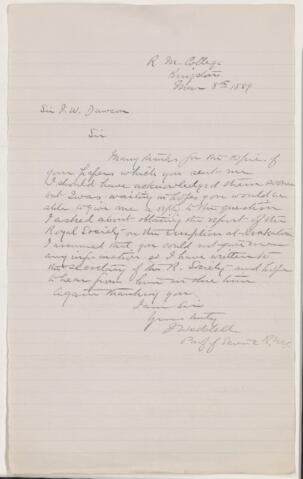 R. M. College
Kingston
Mar 8th 1889
Sir J. W. Dawson
Sir
Many thanks for the copies of
your papers which you sent me
I should have acknowledged them sooner
but I was waiting in hopes you would be
able to give me a reply to the question
I asked about obtaining the report of the
Royal Society on the eruption at Krakatoa
I assumed that you could not give me
any information so I have written to
the secretary of the R. Society and hope
to hear from him in due time
Again thanking you
I am Sir
Yours truly
J Waddell
Prof of Science R.M.C.